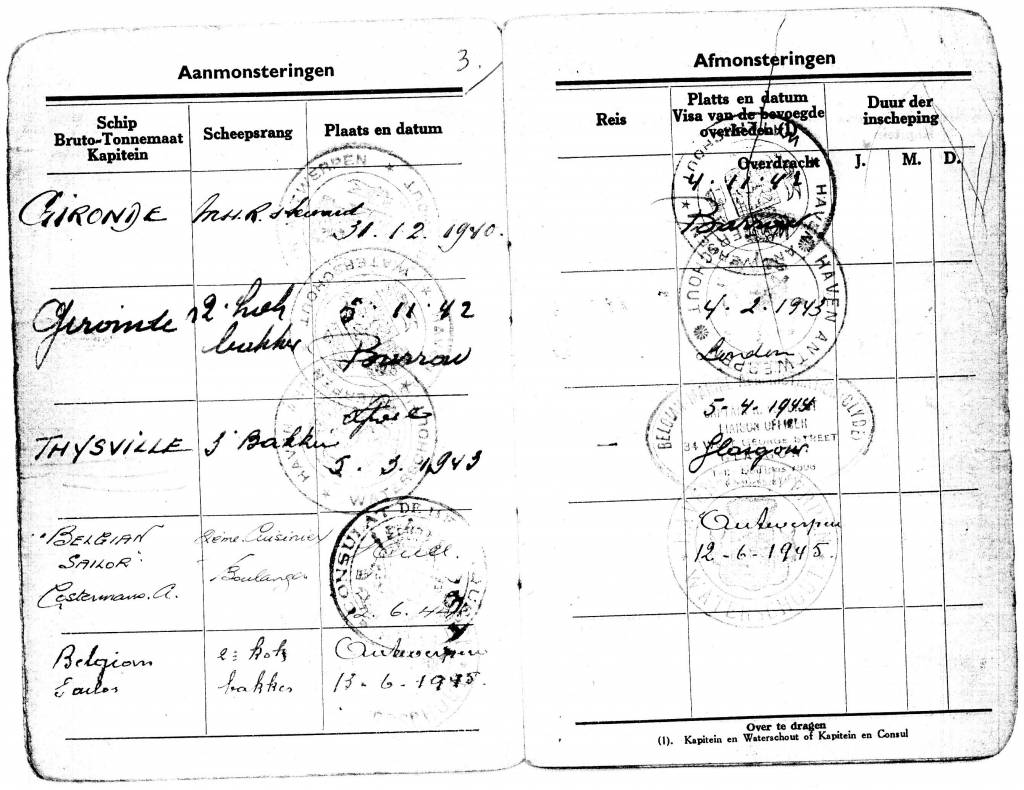 3.
Aanmonsteringen
Schip
Bruto-Tonnemaat
Kapitein
Scheepsrang
Plaats en datum
GIRONDE
31.12.1940.
Gironde
2. kok
bakker
5 11 42
Barrow
THYSVILLE
3° Bakker
5. 3. 1943
BELGIAN
SAILOR
Cestermans. A.
2ème Cuisinier
Boulanger
CONSULAT DE
6. 44
Belgian
Sailor
2e kok
bakker
Antwerpen
13-6-1945.
Afmonsteringen
Reis
Platts en datum
Visa van de bevoegde
overheden (1)
Duur der
inscheping
Overdracht
J.
M.
D.
4. 11. 42
Barrow
HAVEN ANTWERPEN
WATERSCHOUT
4. 2. 1943
London
5-4-1944
LIAISON OFFICER
GEORGE STREET
Glasgow
Antwerpen
12-6-1945.
Over te dragen
(1). Kapitein en Waterschout of Kapitein en Consul